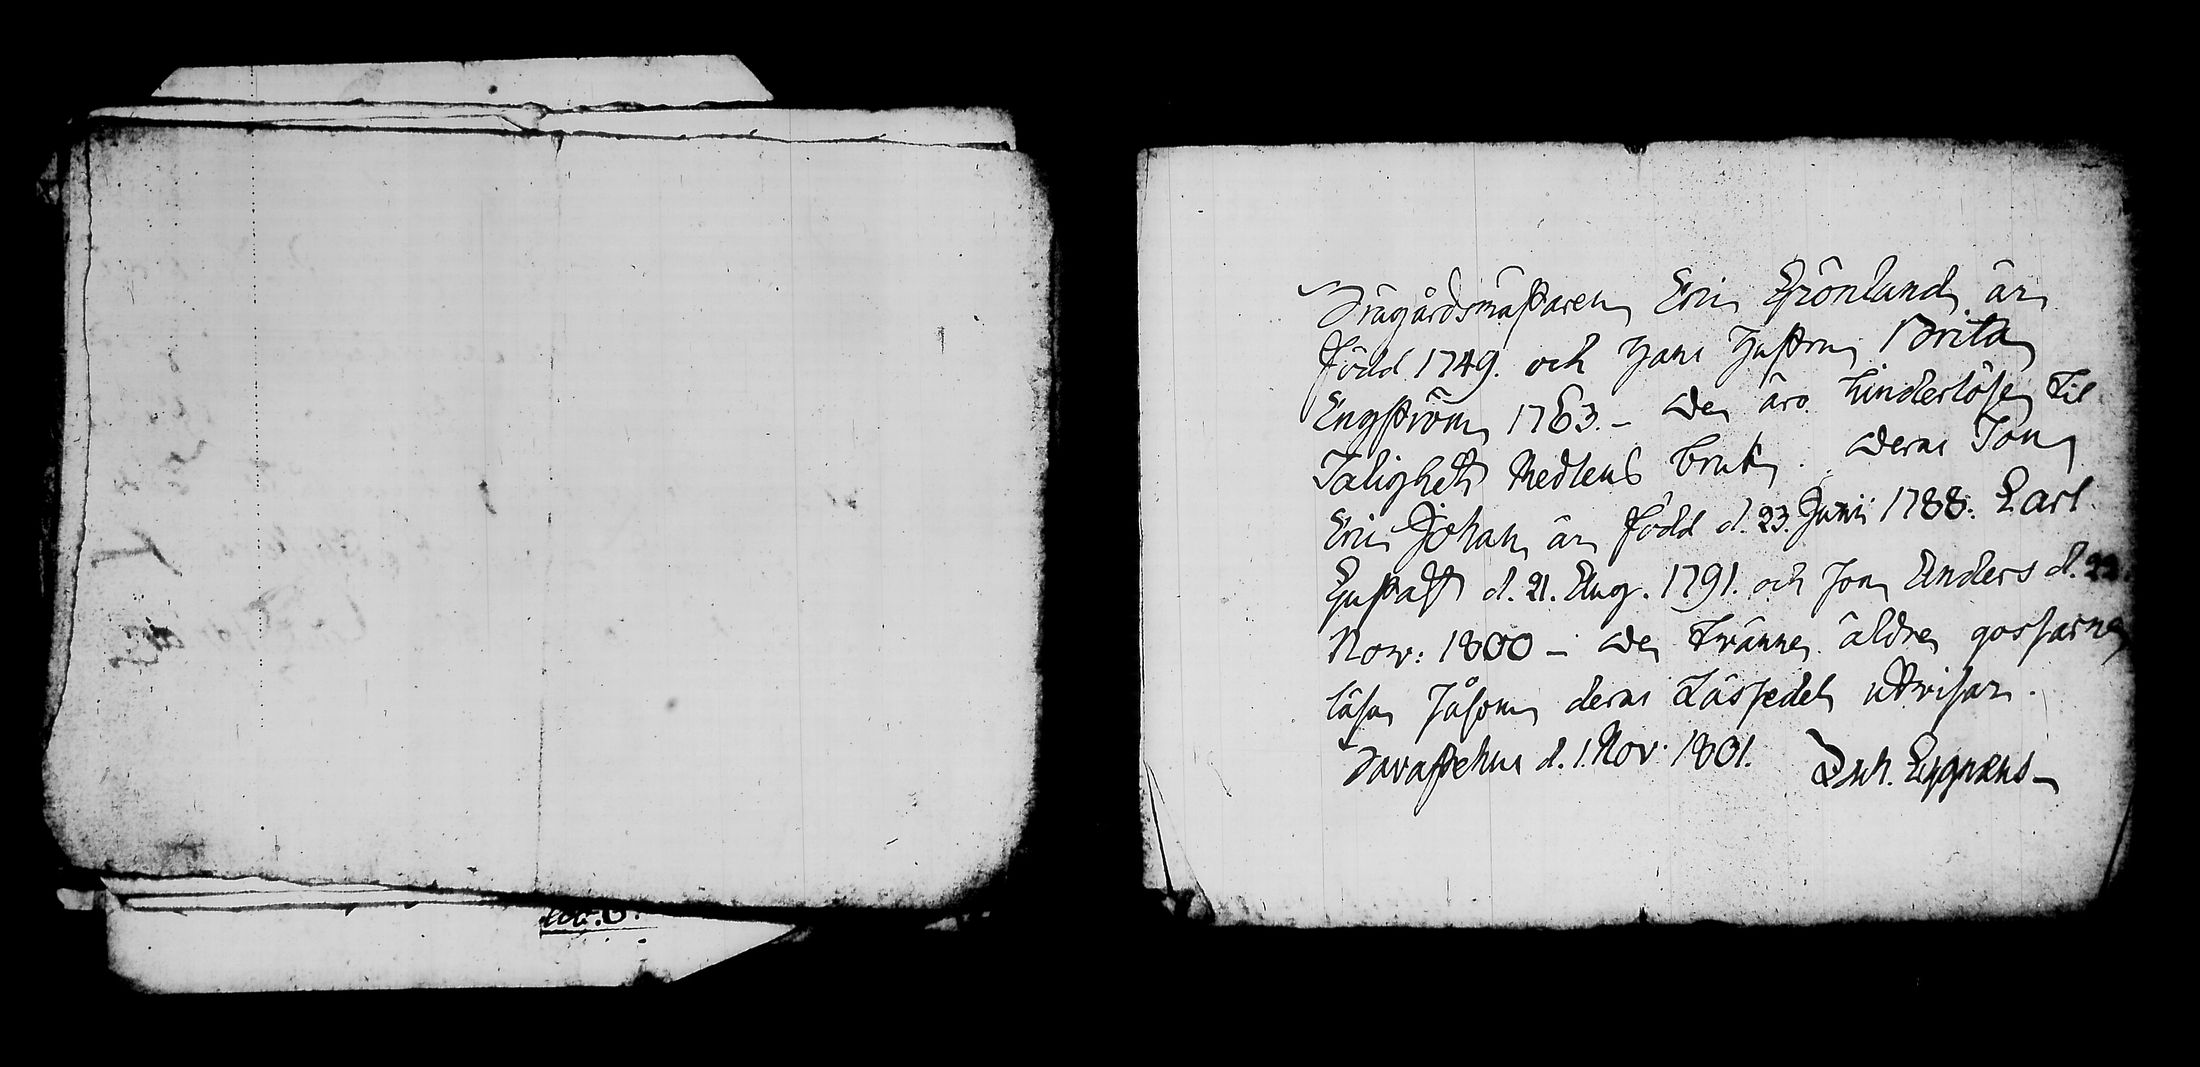 Trägårdsmästaren Eric Grönlund är
född 1749. och hans hustru Brita
Engström 1763. – De äro hinderlöse til
Salighets Medlens bruk. Deras Son
Eric Johan är född d. 23. Junii 1788. Carl
Gustaff d. 21. Aug. 1791. och Jon Anders d. 22.
Nov: 1800 – De tvänne äldre gossarne
läsa såsom deras Lässedel utvisar.
Tavastehus d. 1. Nov. 1801. Zach. Cygnæus